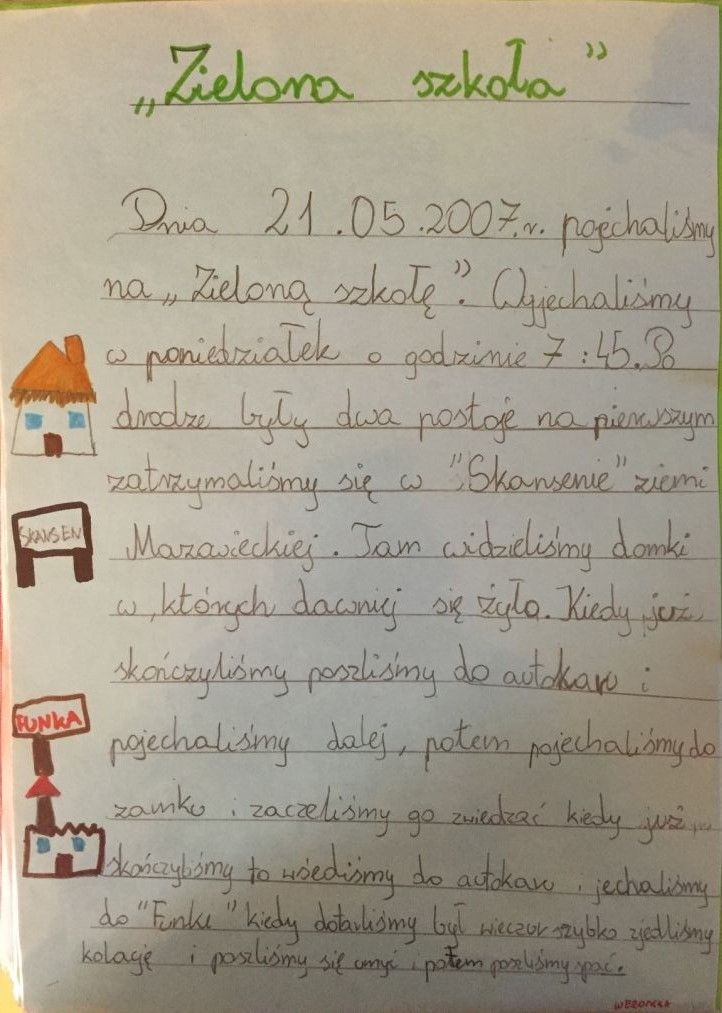 „Zielona szkoła”
Dnia 21.05.2007.r. pojechaliśmy
na „Zieloną szkołę”. Wyjechaliśmy
w poniedziałek o godzinie 7:45. Po
drodze były dwa postoje na pierwszym
zatrzymaliśmy się w "Skansenie" ziemi
SKANSEN
Mazawieckiej. Tam widzieliśmy domki
w, których dawniej się żyło. Kiedy już
skończyliśmy poszliśmy do autokaru i
FUNKA
pojechaliśmy dalej, potem pojechaliśmy do
zamku i zaczeliśmy go zwiedzać kiedy już
skończyliśmy to wśiedliśmy do autokaru i jechaliśmy
do "Funki" kiedy dotarliśmy był wieczur szybko zjedliśmy
kolację i poszliśmy się umyć i potem poszliśmy spać.
WERONIKA